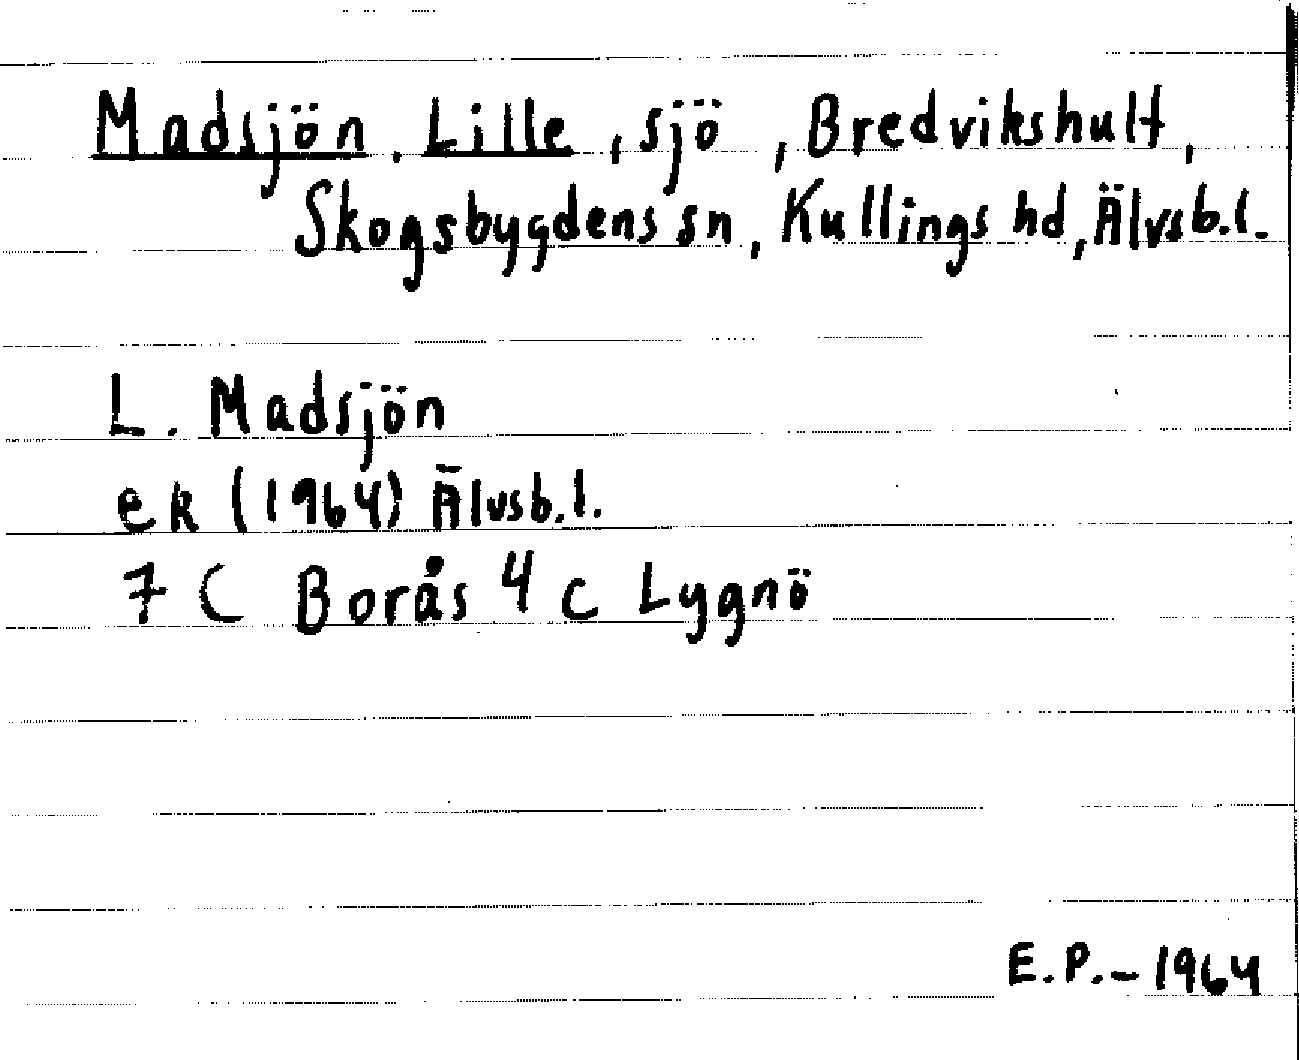 Madsjön, Lille, sjö, Bredvikshult,
Skogsbygdens sn, Kullings hd, Älvsb.l.
L. Madsjön
ek (1964) Älvsb.l.
7 C Borås 4 c Lygnö
E.P.-1964